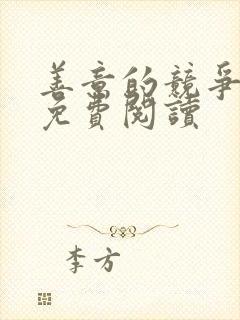 善意的競爭
免費閱讀
李方